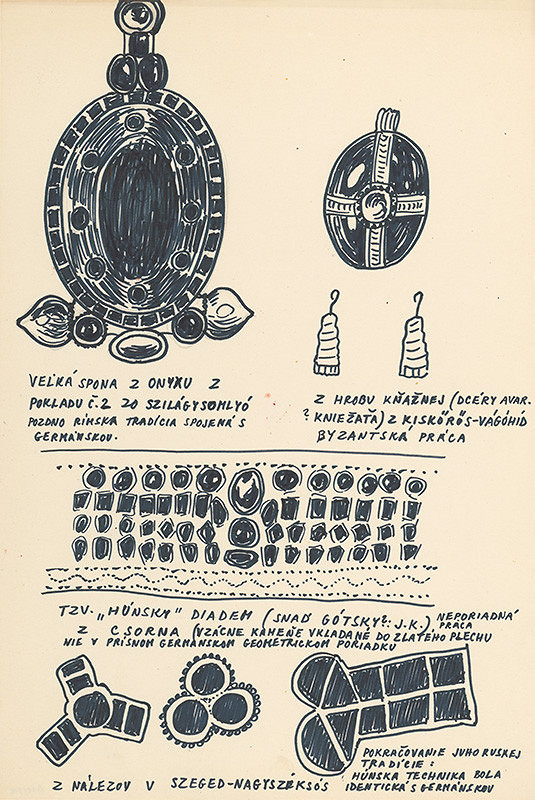 VEĽKÁ SPONA Z ONYXU Z
POKLADU Č.2 ZO SZILÁGYSOMLYÓ
POZDNO RÍMSKA TRADÍCIA SPOJENÁ S
GERMÁNSKOU.
Z HROBU KŇAŽNEJ (DCÉRY AVAR.
? KNIEŽAŤA) Z KISKŐRÖS-VÁGÓHÍD
BYZANTSKÁ PRÁCA
TZV. „HÚNSKY" DIADEM (SNAĎ GÓTSKY?: J.K.) NEPORIADNÁ PRÁCA
Z CSORNA (VZÁCNE KAMEŇE VKLADANÉ DO ZLATÉHO PLECHU
NIE V PRÍSNOM GERMÁNSKOM GEOMETRICKOM PORIADKU
POKRAČOVANIE JUHORUSKEJ
TRADÍCIE:
HÚNSKA TECHNIKA BOLA
IDENTICKÁ S GERMÁNSKOU
Z NÁLEZOV V SZEGED-NAGYSZÉKSÓS